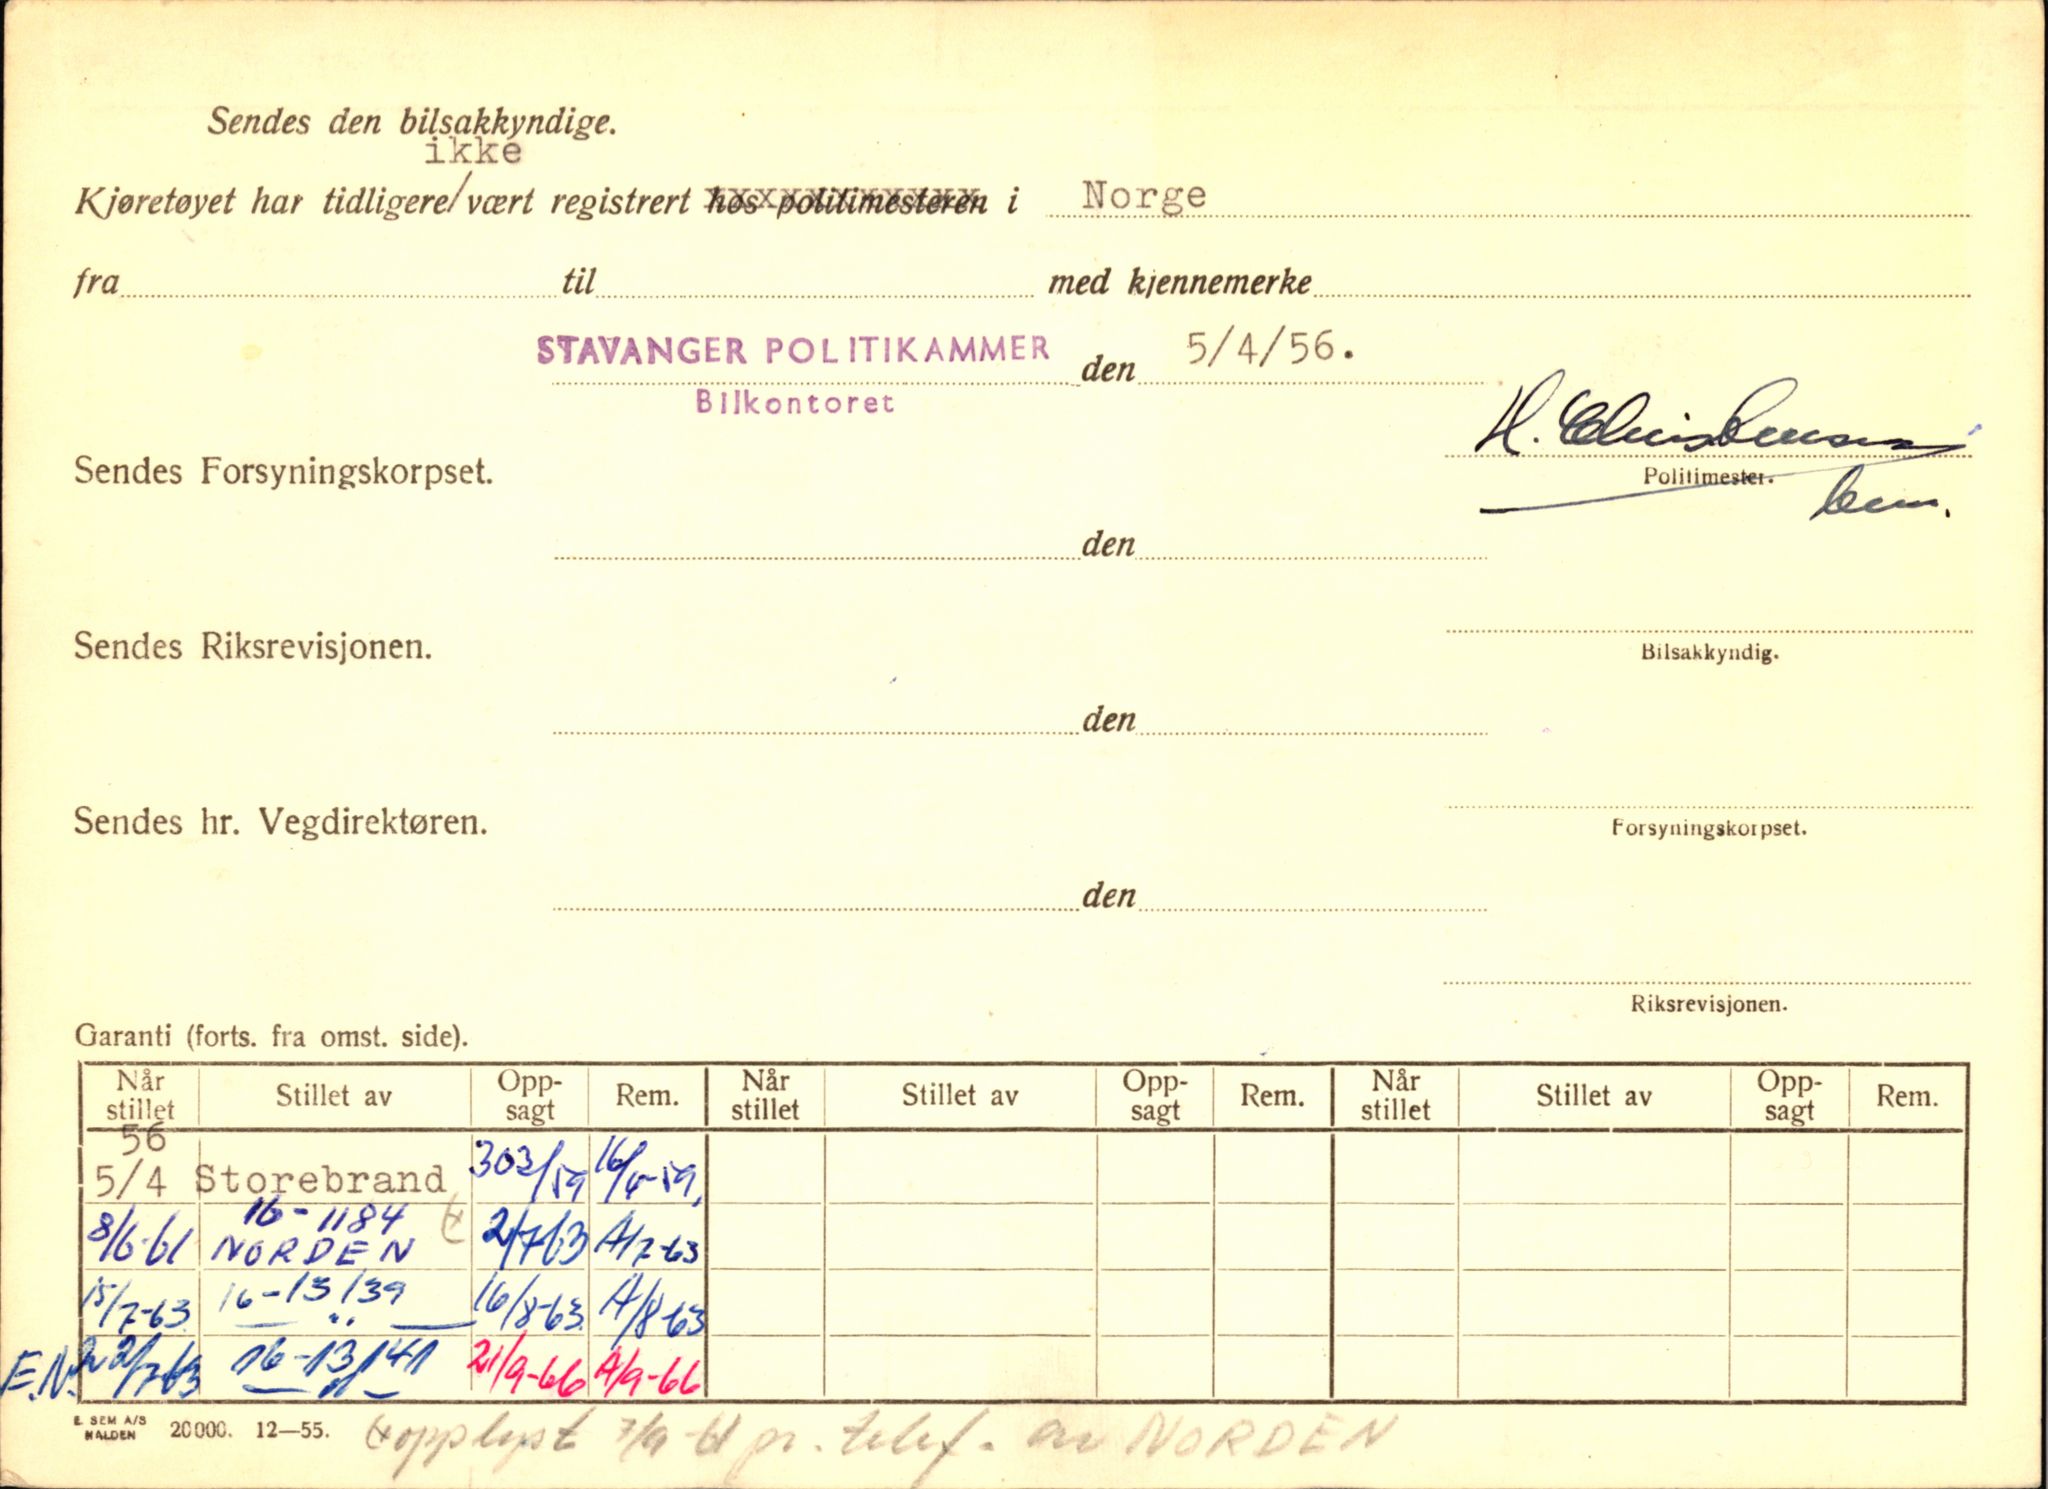 Sendes den bilsakkyndige.
ikke
Kjøretøyet har tidligere/vært registrert hos politimesteren i Norge
fra til med kjennemerke
STAVANGER POLITIKAMMER den 5/4/56.
Bilkontoret
H. Christensen
Sendes Forsyningskorpset.
Politimester.
den
Sendes Riksrevisjonen.
Bilsakkyndig.
den
Sendes hr. Vegdirektøren.
Forsyningskorpset.
den
Riksrevisjonen.
Garanti (forts. fra omst. side).
Når stillet Stillet av Opp-sagt Rem. Når stillet Stillet av Opp-sagt Rem. Når stillet Stillet av Opp-sagt Rem.
56
5/4 Storebrand 303/59 16/4-59,
16-1184
8/6-61 NORDEN 2/7-63 A/7-63
15/7-63 16-13139 16/8-63 A/8-63
— " —
E.N. 22/7-63 16-13141 21/9-66 A/9-66
— " —
E. SEM A/S
HALDEN 20000. 12—55.
x opplyst 7/9-61 pr. telef. av NORDEN